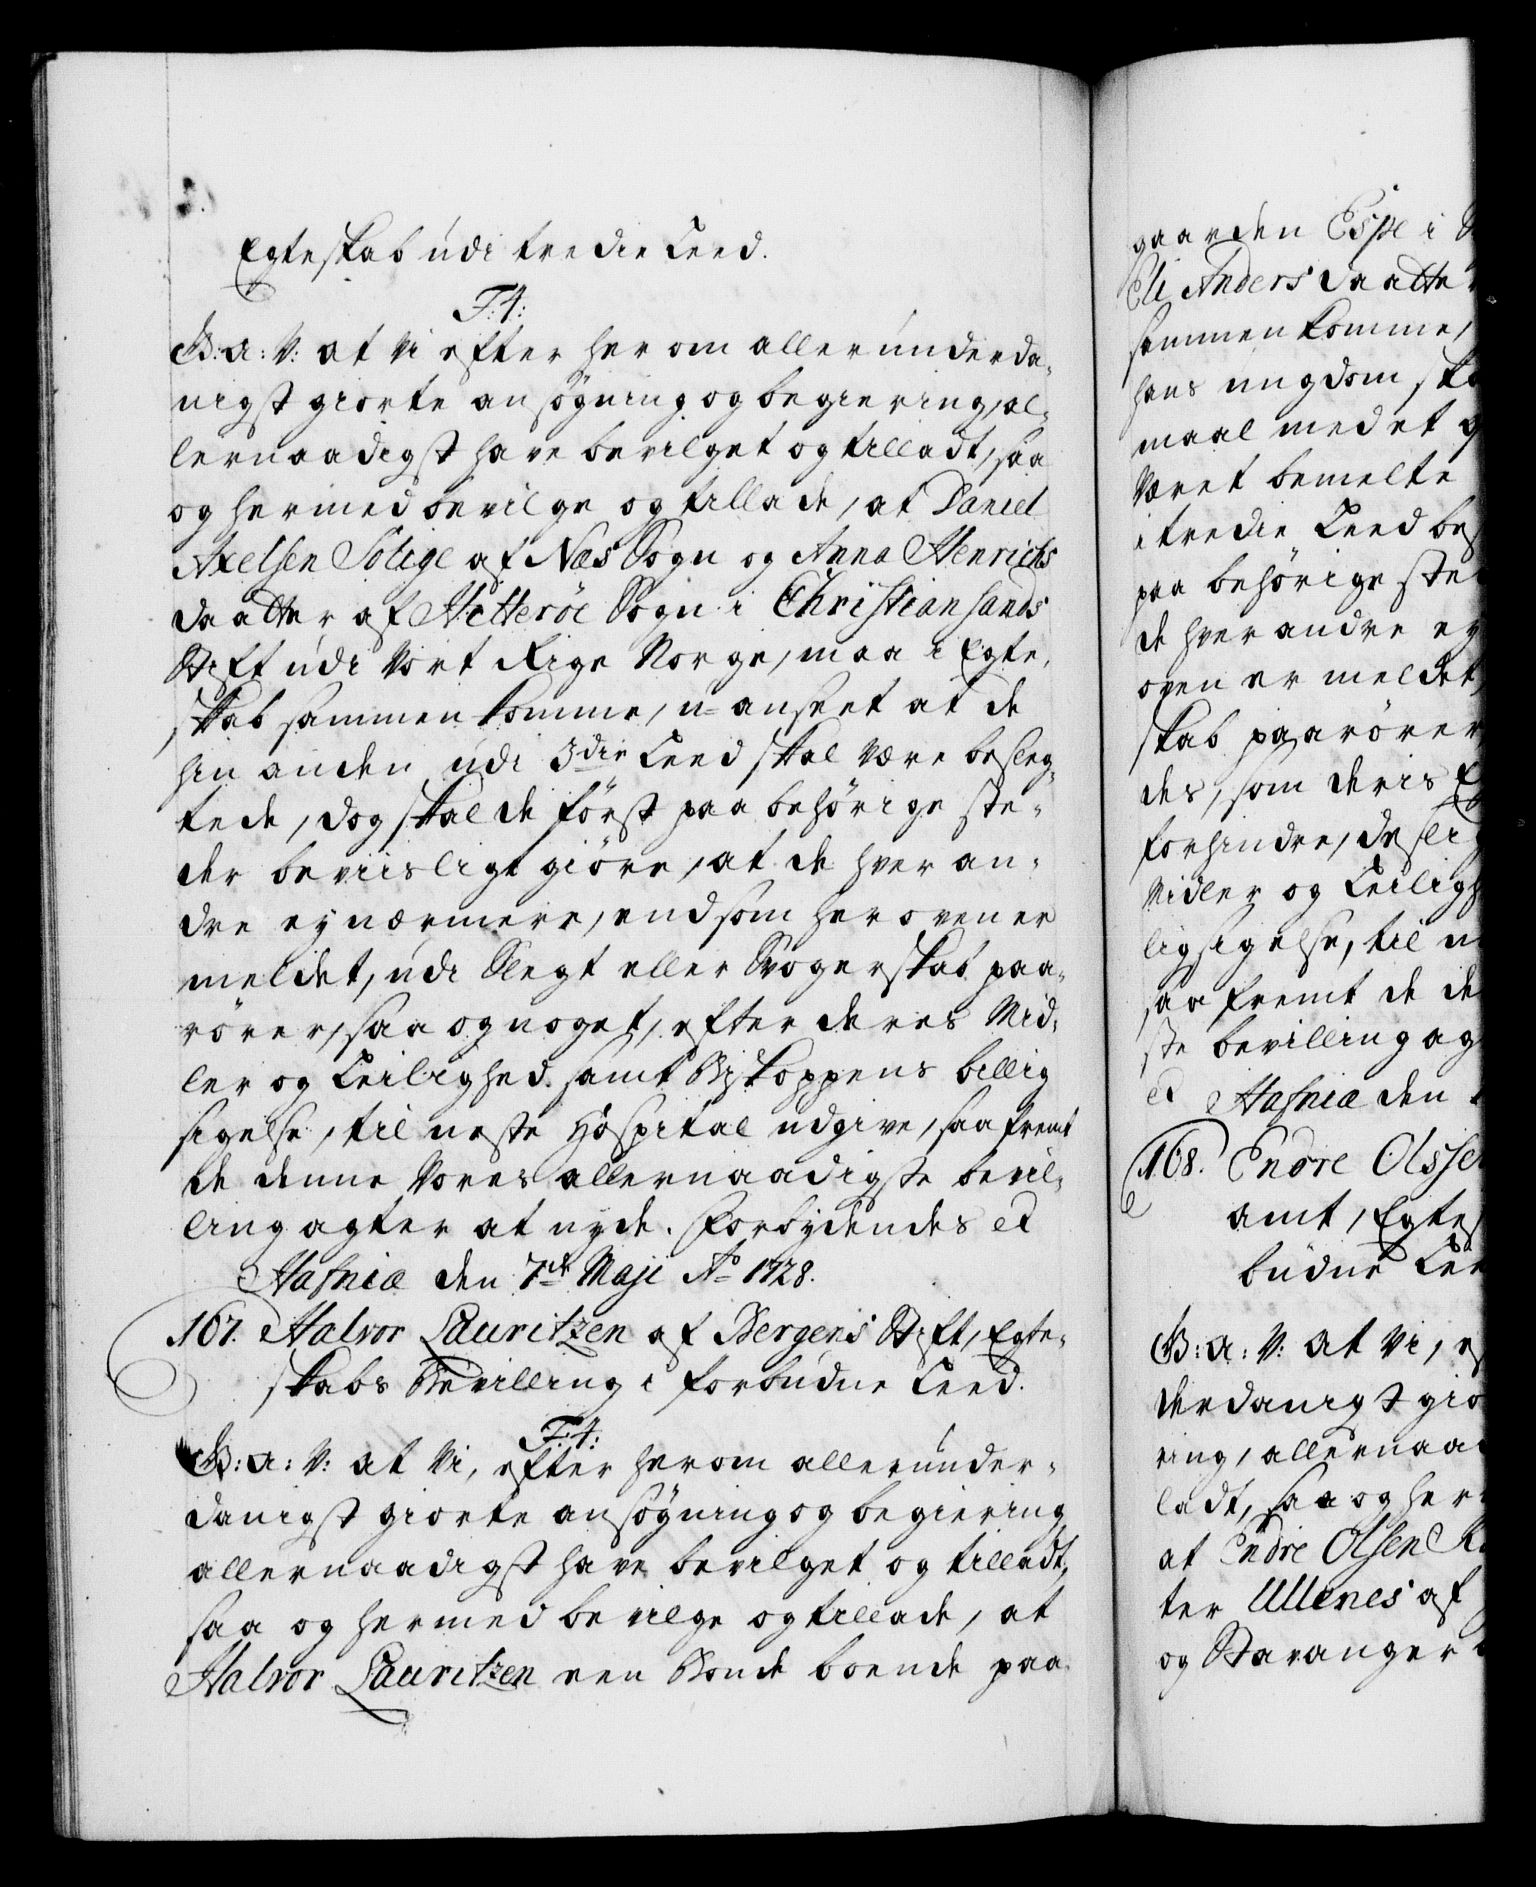 Egteskab udi tredie Leed.
F:4:
G: a: V: at Vi efter her om allerunderda-
nigst giorte ansøgning og begiering, al-
lernaadigst have bevilget og tilladt, saa
og hermed bevilge og tillade, at Daniel
Axelsen Solige af Næs Sogn og Anna Henrichs
daatter af Hetterøe Sogn i Christiansands
Stift udi Vort Rige Norge, maa i Egte-
skab sammen komme, u-anseet at de
hin anden udi 3die Leed skal være besleg-
tede, dog skal de først paa behørige ste-
der beviisligt giøre, at de hver an-
dre ey nærmere, end som her oven er
meldet, udi Slegt eller Svogerskab paa-
rører, saa og noget, efter deres Mid-
ler og Leilighed samt Biskoppens billig
sigelse, til neste Hospital udgive, saafremt
de denne Vores allernaadigste bevil-
ling agter at nyde. Forbydendes et
Hafniæ den 7de Maji Ao 1728.
167. Halvor Lauritzen af Bergens Stift, Egte-
skabs Bevilling i forbudne Leed.
F:4:
G: a: V: at Vi, efter her om allerunder-
danigst giorte ansøgning og begiering
allernaadigst have bevilget og tilladt,
saa og hermed bevilge og tillade, at
Halvor Lauritzen een Bonde boende paa
gaarden Espe i
Eli Anders daatter
sammen komme,
hans ungdom
maal med et
Været bemelte
i tredie Leed
paa behørige
de hver andre
oven er meldet,
skab paarører
des, som deris
forhindre,
Midler og
ligsigelse, til
saafremt de
ste bevilling
et Hafniæ den
168. Endre Olssen
amt,
budne
G: a: V: at Vi,
derdanigst
ring,
ladt, saa og
at Endre Olsen
ter Ullenes af
og Stavanger